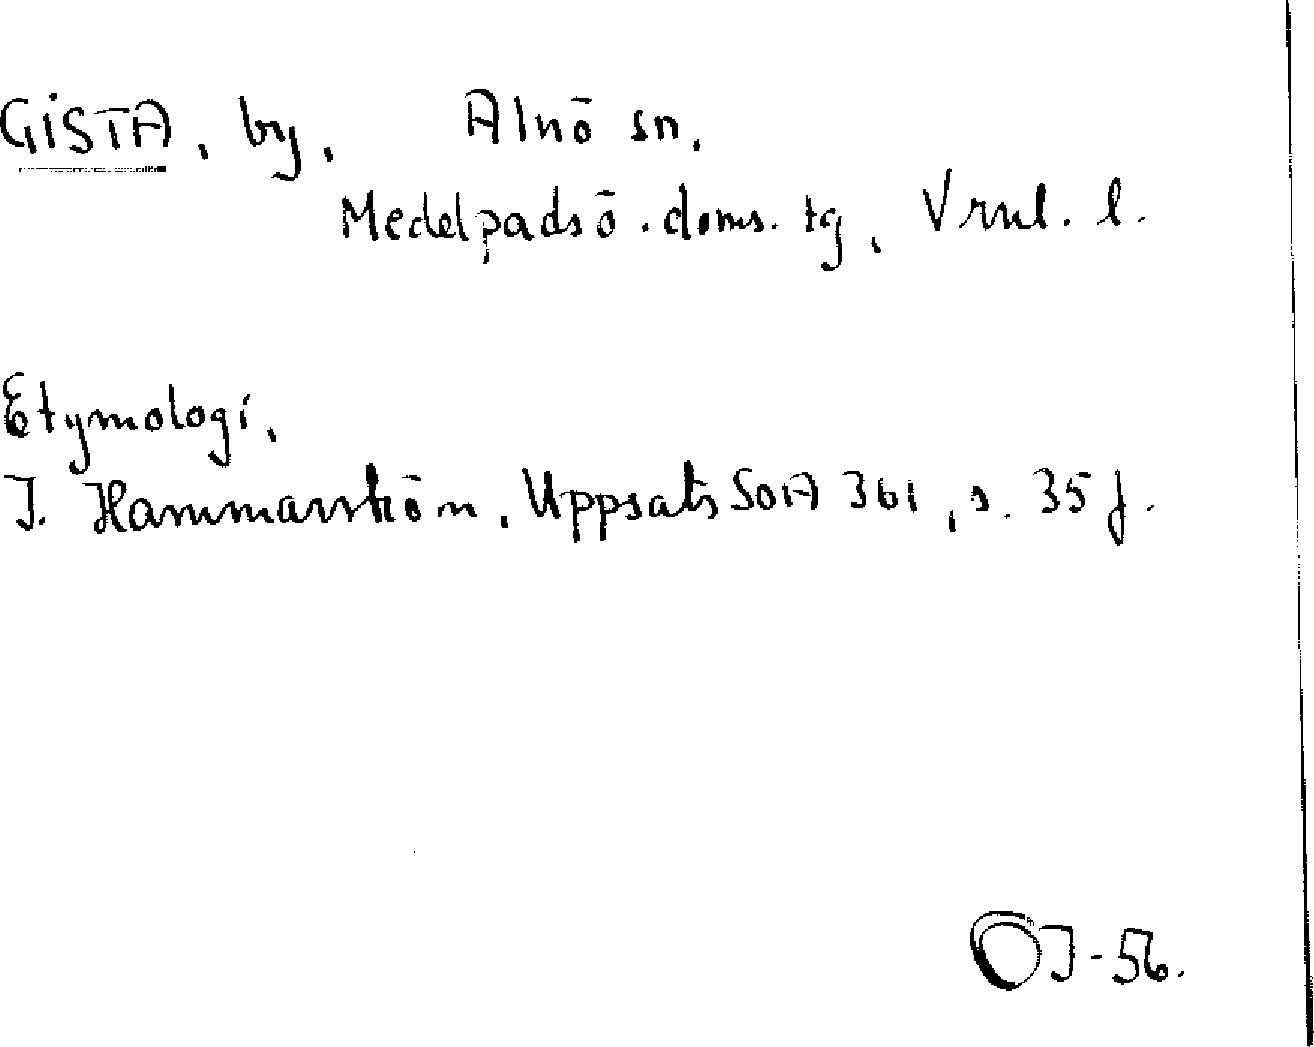 GISTA, by, Alnö sn,
Medelpadsö. doms. tg, Vrnl. l.
Etymologi,
I. Hammarström, Uppsats SOA 361, s. 35 f.
OJ-56.